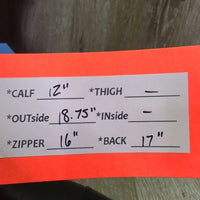 *CALF 12" *THIGH –
*OUTside 18.75" *INside –
*ZIPPER 16" *BACK 17"